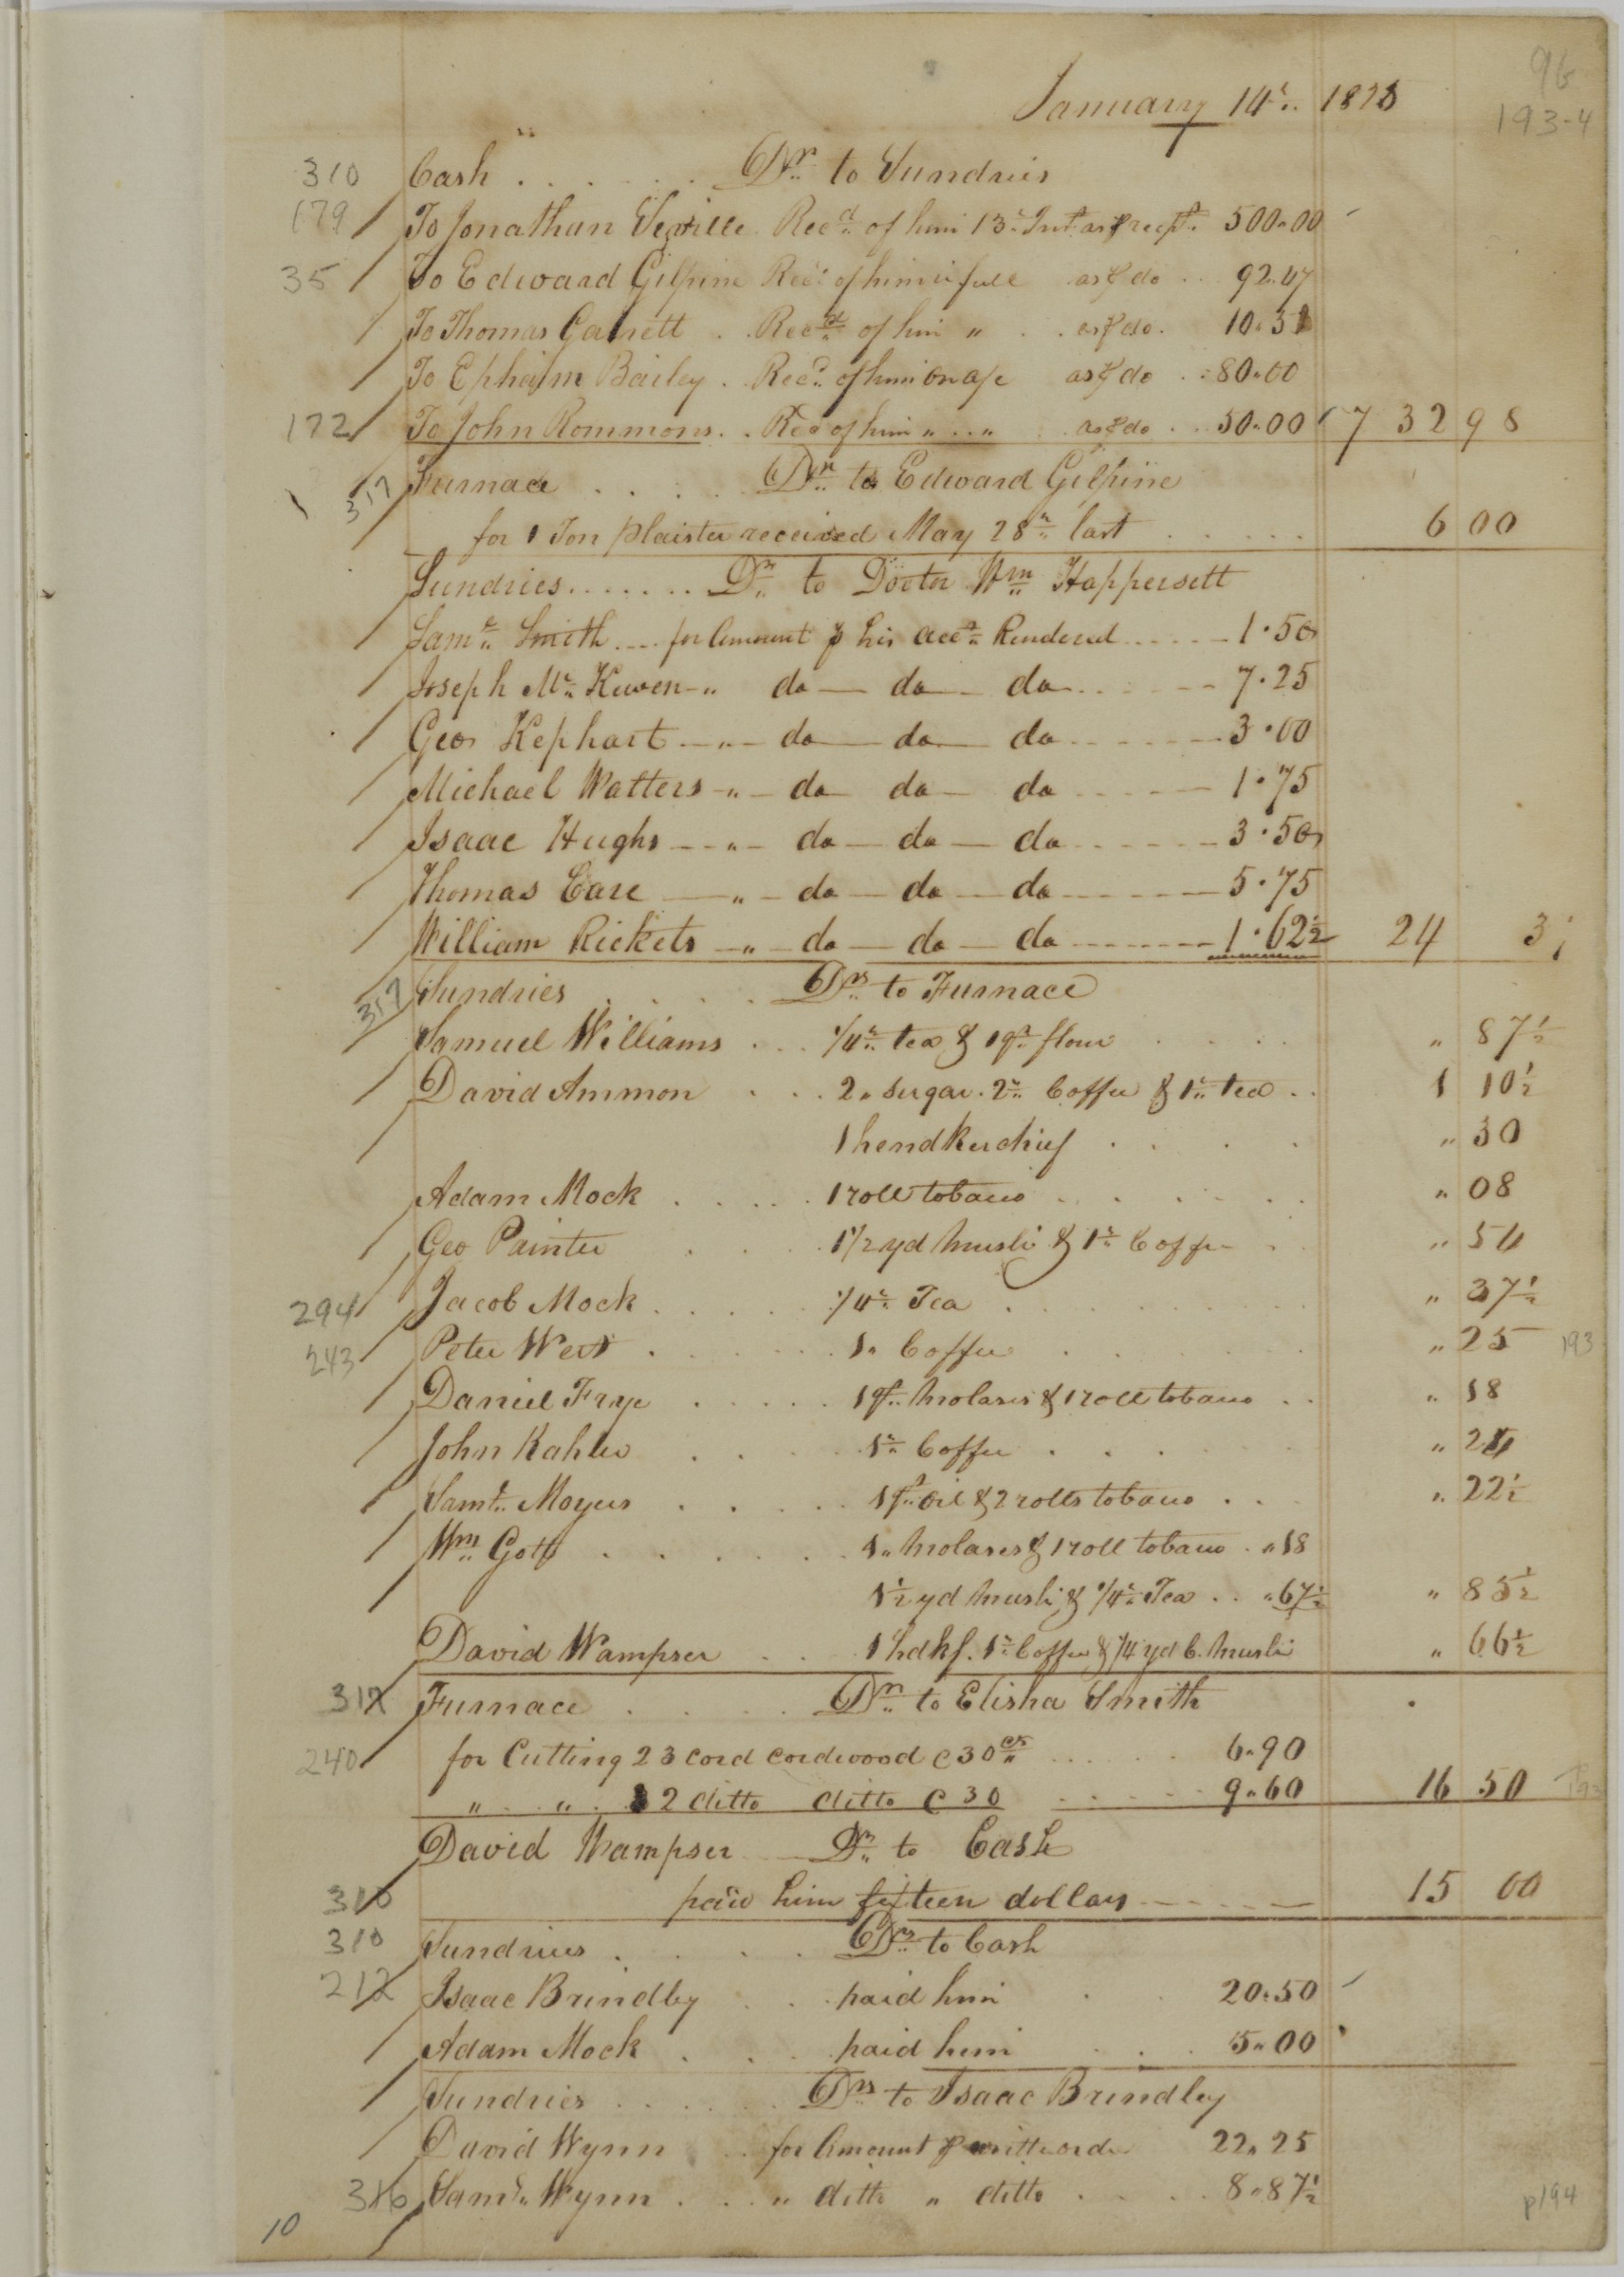 96
January 14th 1828
193-4
310 Cash . . . . . Dr to Sundries
179 To Jonathan Recd of him 13th Inst as pr recpt 500.00
35 To Edward Gilpine Recd of him in full as pr do . . 92.47
To Thomas Garrett . . Recd of him " . . as pr do . 10.51
To Ephaim Bailey . Recd of him on a/c as pr do . . 80.00
172 To John Rommons . . Recd of him " . . " as pr do . . 50.00 732 98
317 Furnace . . . . Dr to Edward Gilpine
for 1 Ton plaister received May 28th last . . . . . 6 00
Sundries . . . . . . . Drs to Doctor Wm Happersett
Saml Smith .... for Amount pr his acct Rendered ..... 1.50
Joseph Mc Kewen - " do — do — do ..... 7.25
Geo Kephart - " - do — do — do ..... 3.00
Michael Watters - " - do do — do ..... 1.75
Isaac Hughs - " - do — do — do ..... 3.50
Thomas Care — " - do — do — do ..... 5.75
William Rickets - " - do — do — do ..... 1.62½ 24 3
317 Sundries . . . . Drs to Furnace
Samuel Williams . . . 1/4 " tea & 1 qr flour . . . . " 87½
David Ammon . . . 2 " sugar . 2 " Coffee & 1 " tea . . 1 10½
1 hendkerchief . . . . " 30
Adam Mock . . . . . 1 roll tobacco . . . . . " 08
Geo Painter . . . 1 1/2 yd musli & 1 " Coffee . " 54
294 Jacob Mock . . . . . 1/4 " Tea . . . . . . " 37½
243 Peter Wert . . . . . . 1 " Coffee . . . . . " 25 193
Daniel Frye . . . . . 1 qt molases & 1 roll tobacco . . " 18
John Kahler . . . . 1 " Coffee . . . . " 24
Saml Moyers . . . . . 1 pt oil & 2 rolls tobacco . . " 22½
Wm Gott . . . . . . 1 " molases & 1 roll tobacco . " 18
1½ yd musli & 1/4 " Tea . . " 67½ " 85½
David Wampser . . 1 hdkf. 1 " Coffee & 1/4 yd C. musli " 66½
317 Furnace . . . . Dr to Elisha Smith
240 for Cutting 23 cord cordwood @ 30 cts ..... 6.90
" " . 32 ditto ditto @ 30 ..... 9.60 16 50 193
David Wampser Dr to Cash
310 paid him fifteen dollars ..... 15 00
310 Sundries . . . . Drs to Cash
212 Isaac Brindley . . paid him . . 20.50
Adam Mock . . . paid him . . . 5.00
Sundries . . . . . . Drs to Isaac Brindley
David Wynn . . for Amount pr written order 22.25
316 Saml Wynn . . . " ditto " ditto . . . . 8.87½
p194
10